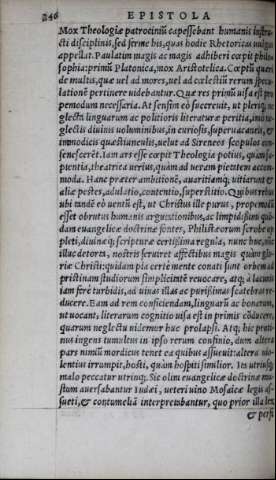 246 EPISTOLA
Mox Theologiæ patrocinium capessebant humanis instru⸗
cti disciplinis, sed ferme his, quas hodie Rhetoricas uulgus
appellat. Paulatim magis ac magis adhiberi cœpit philo⸗
sophia: primū Platonica, mox Aristotelica. Cœptū quæri
de multis, quæ uel ad mores, uel ad cœlestiū rerum specu⸗
lationē pertinere uidebantur. Quæ res primū uisa est pro
pemodum necessaria. At sensim eò succreuit, ut plerique ne
glecta linguarum ac politioris literaturæ peritia, imò ne
glectis diuinis uoluminibus, in curiosis, superuacaneis, &
immodicis quæstiunculis, uelut ad Sireneos scopulos con⸗
senescerēt. Iam ars esse cœpit Theologia potius, quàm sa⸗
pientia, theatrica uerius, quàm ad ueram pietatem accom⸗
moda. Hanc præter ambitionē, auaritiamque, uitiarunt &
aliæ pestes, adulatio, contentio, superstitio. Quibus rebus
ubi tandē eò uentū est, ut Christus ille purus, propemodū
esset obrutus humanis argutationibus, ac limpidissimi qui⸗
dam euangelicæ doctrinæ fontes, Philistæorum scrobe op
pleti, diuinæque scripturæ certissima regula, nunc huc, nūc
illuc detorta, nostris seruiret affectibus magis quàm glo⸗
riæ Christi: quidam pia certè mente conati sunt orbem ad
pristinam studiorum simplicitatē reuocare, atque à lacunis
iam ferè turbidis, ad uiuas illas ac purissimas scatebras re⸗
ducere. Eam ad rem conficiendam, linguarū ac bonarum,
ut uocant, literarum cognitio uisa est in primis cōducere,
quarum neglectu uidemur huc prolapsi. Atque hic proti⸗
nus ingens tumultus in ipso rerum confinio, dum altera
pars nimiū mordicus tenet ea quibus assueuit: altera uio⸗
lentius irrumpit, hosti, quàm hospiti similior. Vt utrinque,
malo peccatur utrinque. Sic olim euangelicæ doctrinæ mu⸗
stum auersabantur Iudæi, ueteri uino Mosaicæ legis as⸗
sueti, & contumeliā interpretabantur, quo prior illa lex
& perfi